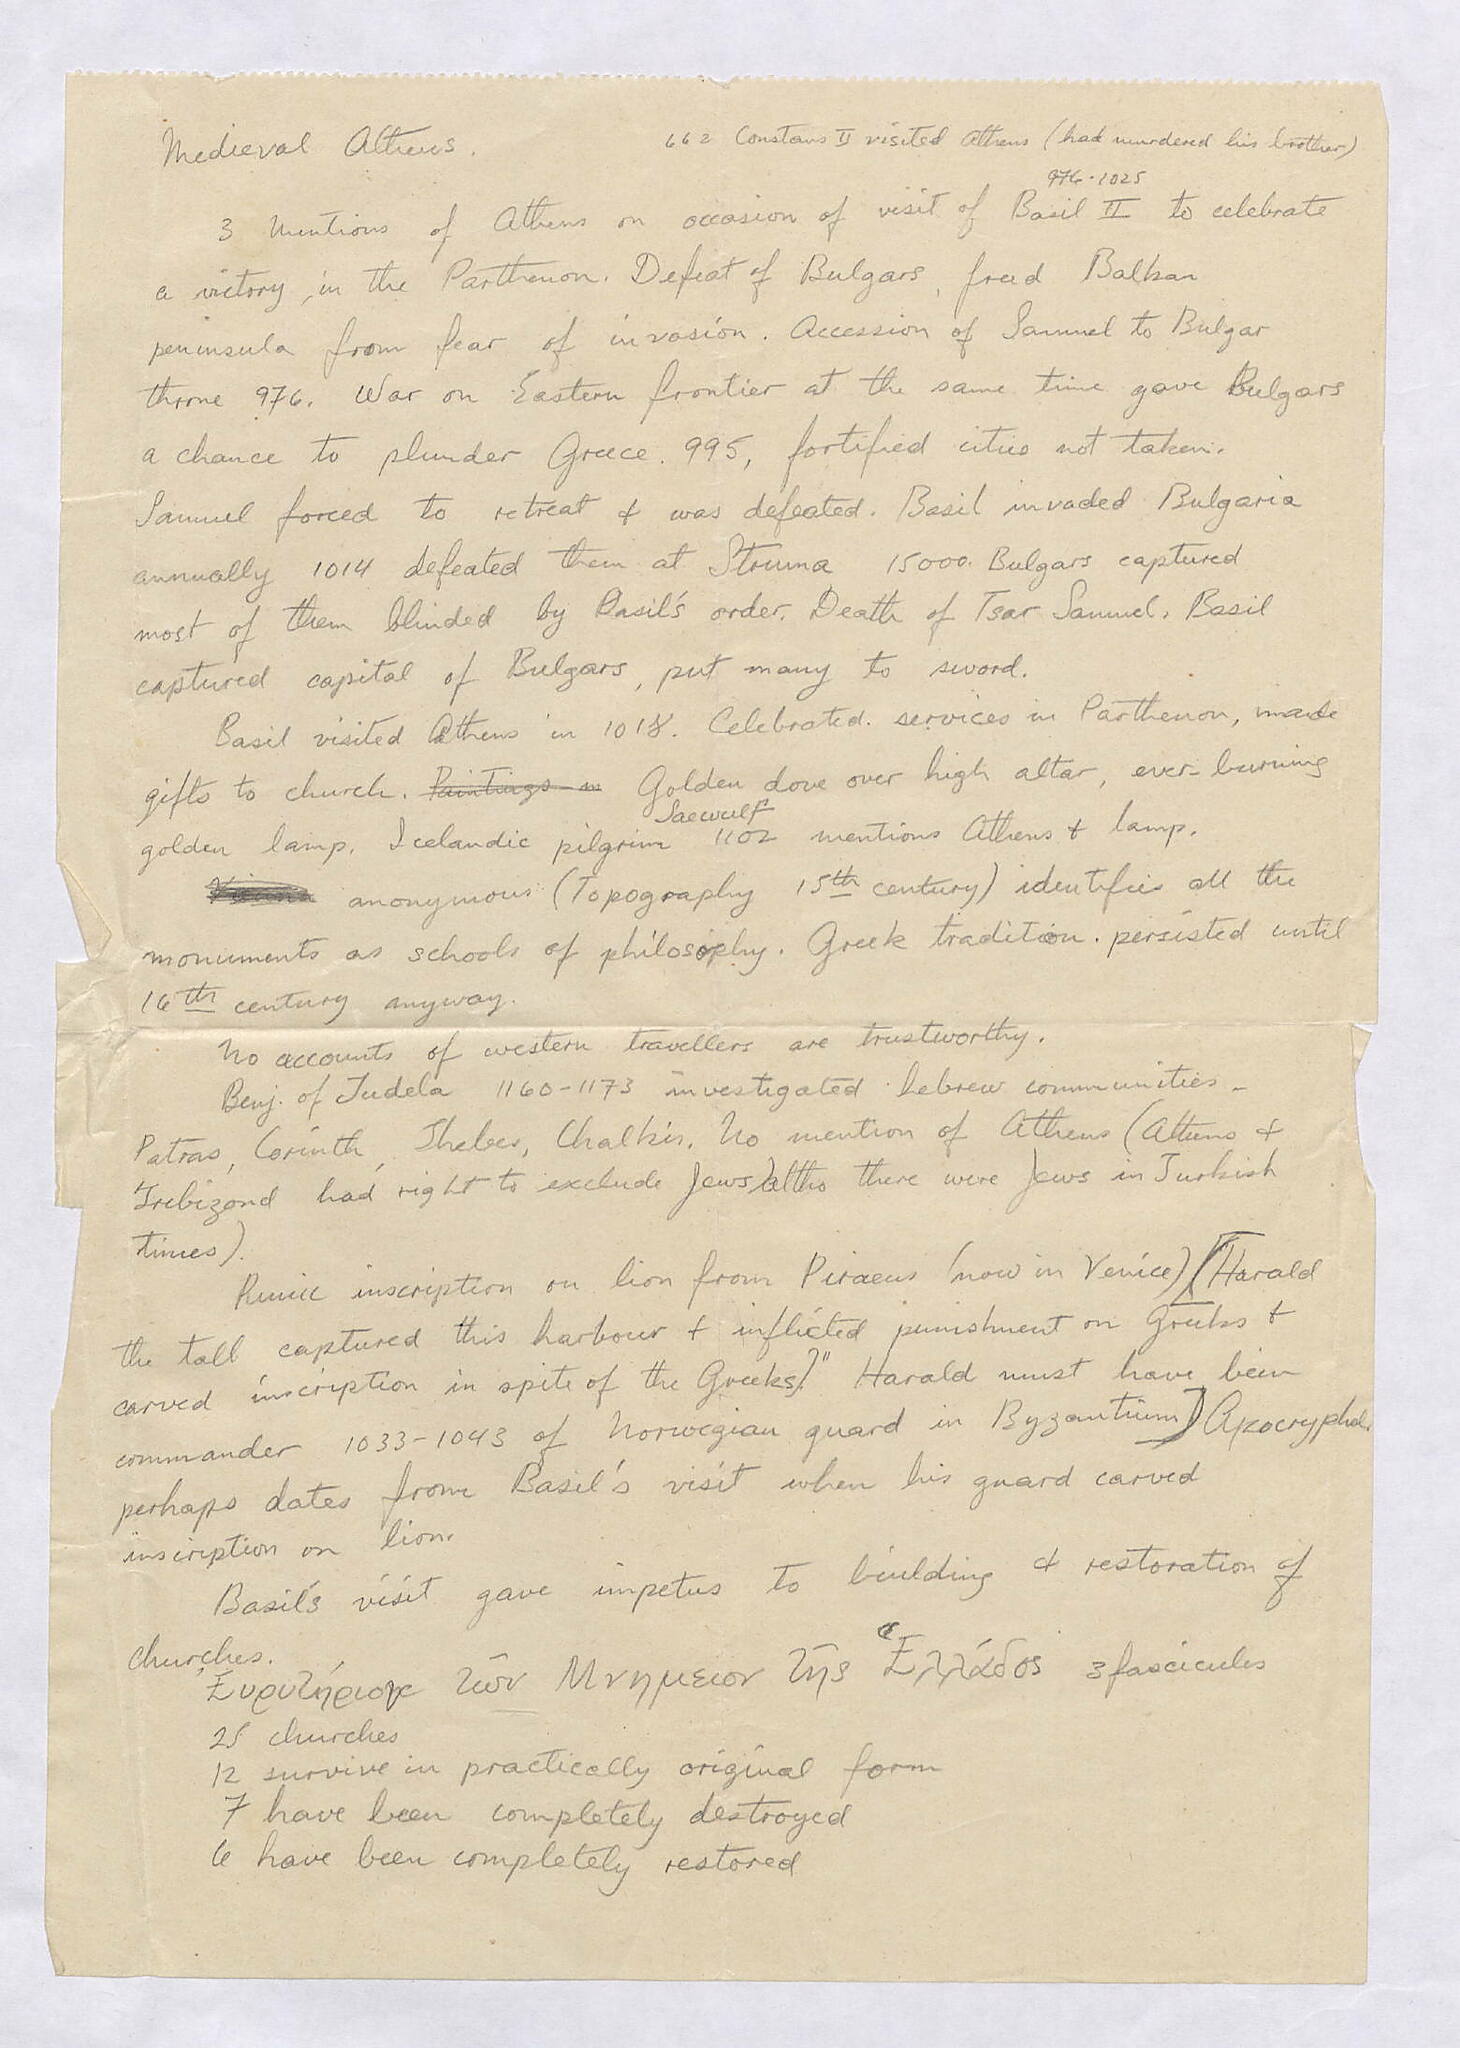 Medieval Athens.
662 Constans II visited Athens (had murdered his brother)
976-1025
3 mentions of Athens on occasion of visit of Basil II to celebrate
a victory, in the Parthenon. Defeat of Bulgars, freed Balkan
peninsula from fear of invasion. Accession of Samuel to Bulgar
throne 976. War on Eastern frontier at the same time gave Bulgars
a chance to plunder Greece. 995, fortified cities not taken.
Samuel forced to retreat & was defeated. Basil invaded Bulgaria
annually 1014 defeated them at Struma 15000 Bulgars captured
most of them blinded by Basil's order. Death of Tsar Samuel. Basil
captured capital of Bulgars, put many to sword.
Basil visited Athens in 1018. Celebrated services in Parthenon, made
gifts to church. Paintings in Golden dove over high altar, ever-burning
Saewulf
golden lamp. Icelandic pilgrim 1102 mentions Athens & lamp.
anonymous (Topography 15th century) identifies all the
monuments as schools of philosophy. Greek tradition persisted until
16th century anyway.
No accounts of western travellers are trustworthy.
Benj. of Tudela 1160-1173 investigated hebrew communities -
Patras, Corinth, Thebes, Chalkis. No mention of Athens (Athens &
Trebizond had right to exclude Jews) altho there were Jews in Turkish
times).
Runic inscription on lion from Piraeus (now in Venice) [Harald
the tall captured this harbour & inflicted punishment on Greeks &
carved inscription in spite of the Greeks)." Harald must have been
commander 1033-1043 of Norwegian guard in Byzantium] Apocryphal.
perhaps dates from Basil's visit when his guard carved
inscription on lion.
Basil's visit gave impetus to building & restoration of
churches.
Ευρυτήριον τῶν Μνημειον τῆς Ἑλλάδος 3 fascicules
25 churches
12 survive in practically original form
7 have been completely destroyed
6 have been completely restored